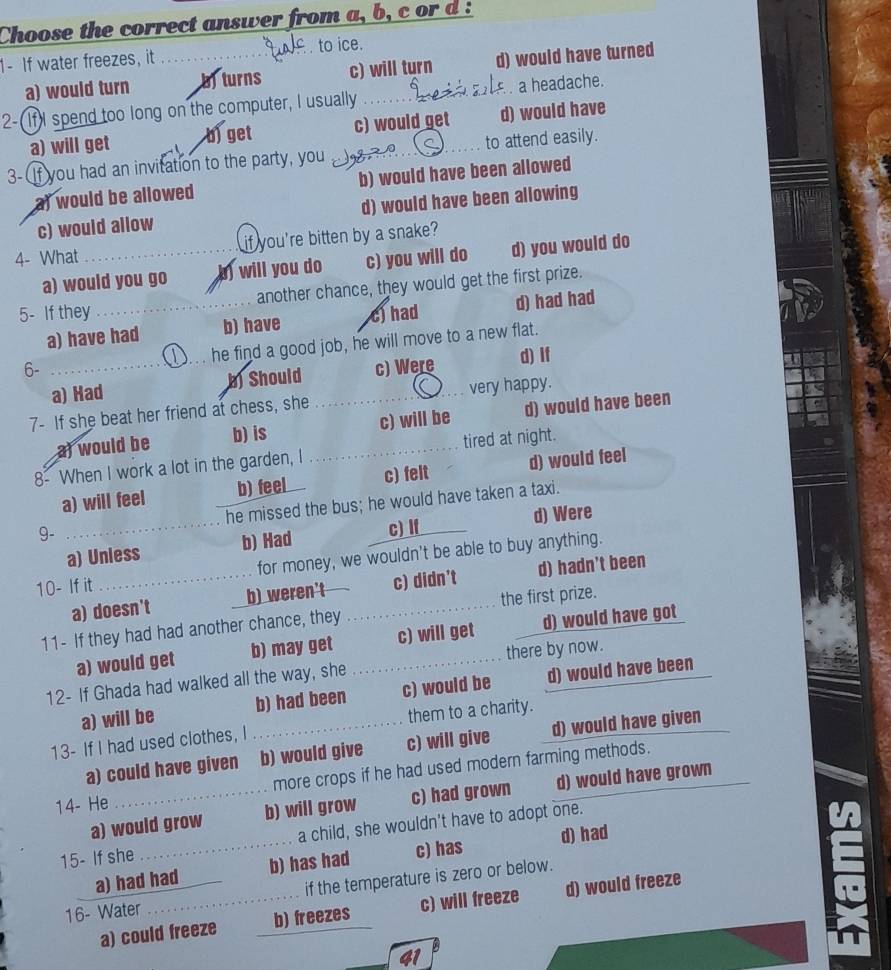 Choose the correct answer from a, b, c or d :
1- If water freezes, it .................. to ice.
a) would turn b) turns c) will turn d) would have turned
2- If I spend too long on the computer, I usually .................. a headache.
a) will get b) get c) would get d) would have
3- If you had an invitation to the party, you .................. to attend easily.
a) would be allowed b) would have been allowed
c) would allow d) would have been allowing
4- What .................. if you're bitten by a snake?
a) would you go b) will you do c) you will do d) you would do
5- If they .................. another chance, they would get the first prize.
a) have had b) have c) had d) had had
6- .................. he find a good job, he will move to a new flat.
a) Had b) Should c) Were d) If
7- If she beat her friend at chess, she .................. very happy.
a) would be b) is c) will be d) would have been
8- When I work a lot in the garden, I .................. tired at night.
a) will feel b) feel c) felt d) would feel
9- .................. he missed the bus; he would have taken a taxi.
a) Unless b) Had c) If d) Were
10- If it .................. for money, we wouldn't be able to buy anything.
a) doesn't b) weren't c) didn't d) hadn't been
11- If they had had another chance, they .................. the first prize.
a) would get b) may get c) will get d) would have got
12- If Ghada had walked all the way, she .................. there by now.
a) will be b) had been c) would be d) would have been
13- If I had used clothes, I .................. them to a charity.
a) could have given b) would give c) will give d) would have given
14- He .................. more crops if he had used modern farming methods.
a) would grow b) will grow c) had grown d) would have grown
15- If she .................. a child, she wouldn't have to adopt one.
a) had had b) has had c) has d) had
16- Water .................. if the temperature is zero or below.
a) could freeze b) freezes c) will freeze d) would freeze
41
Exams